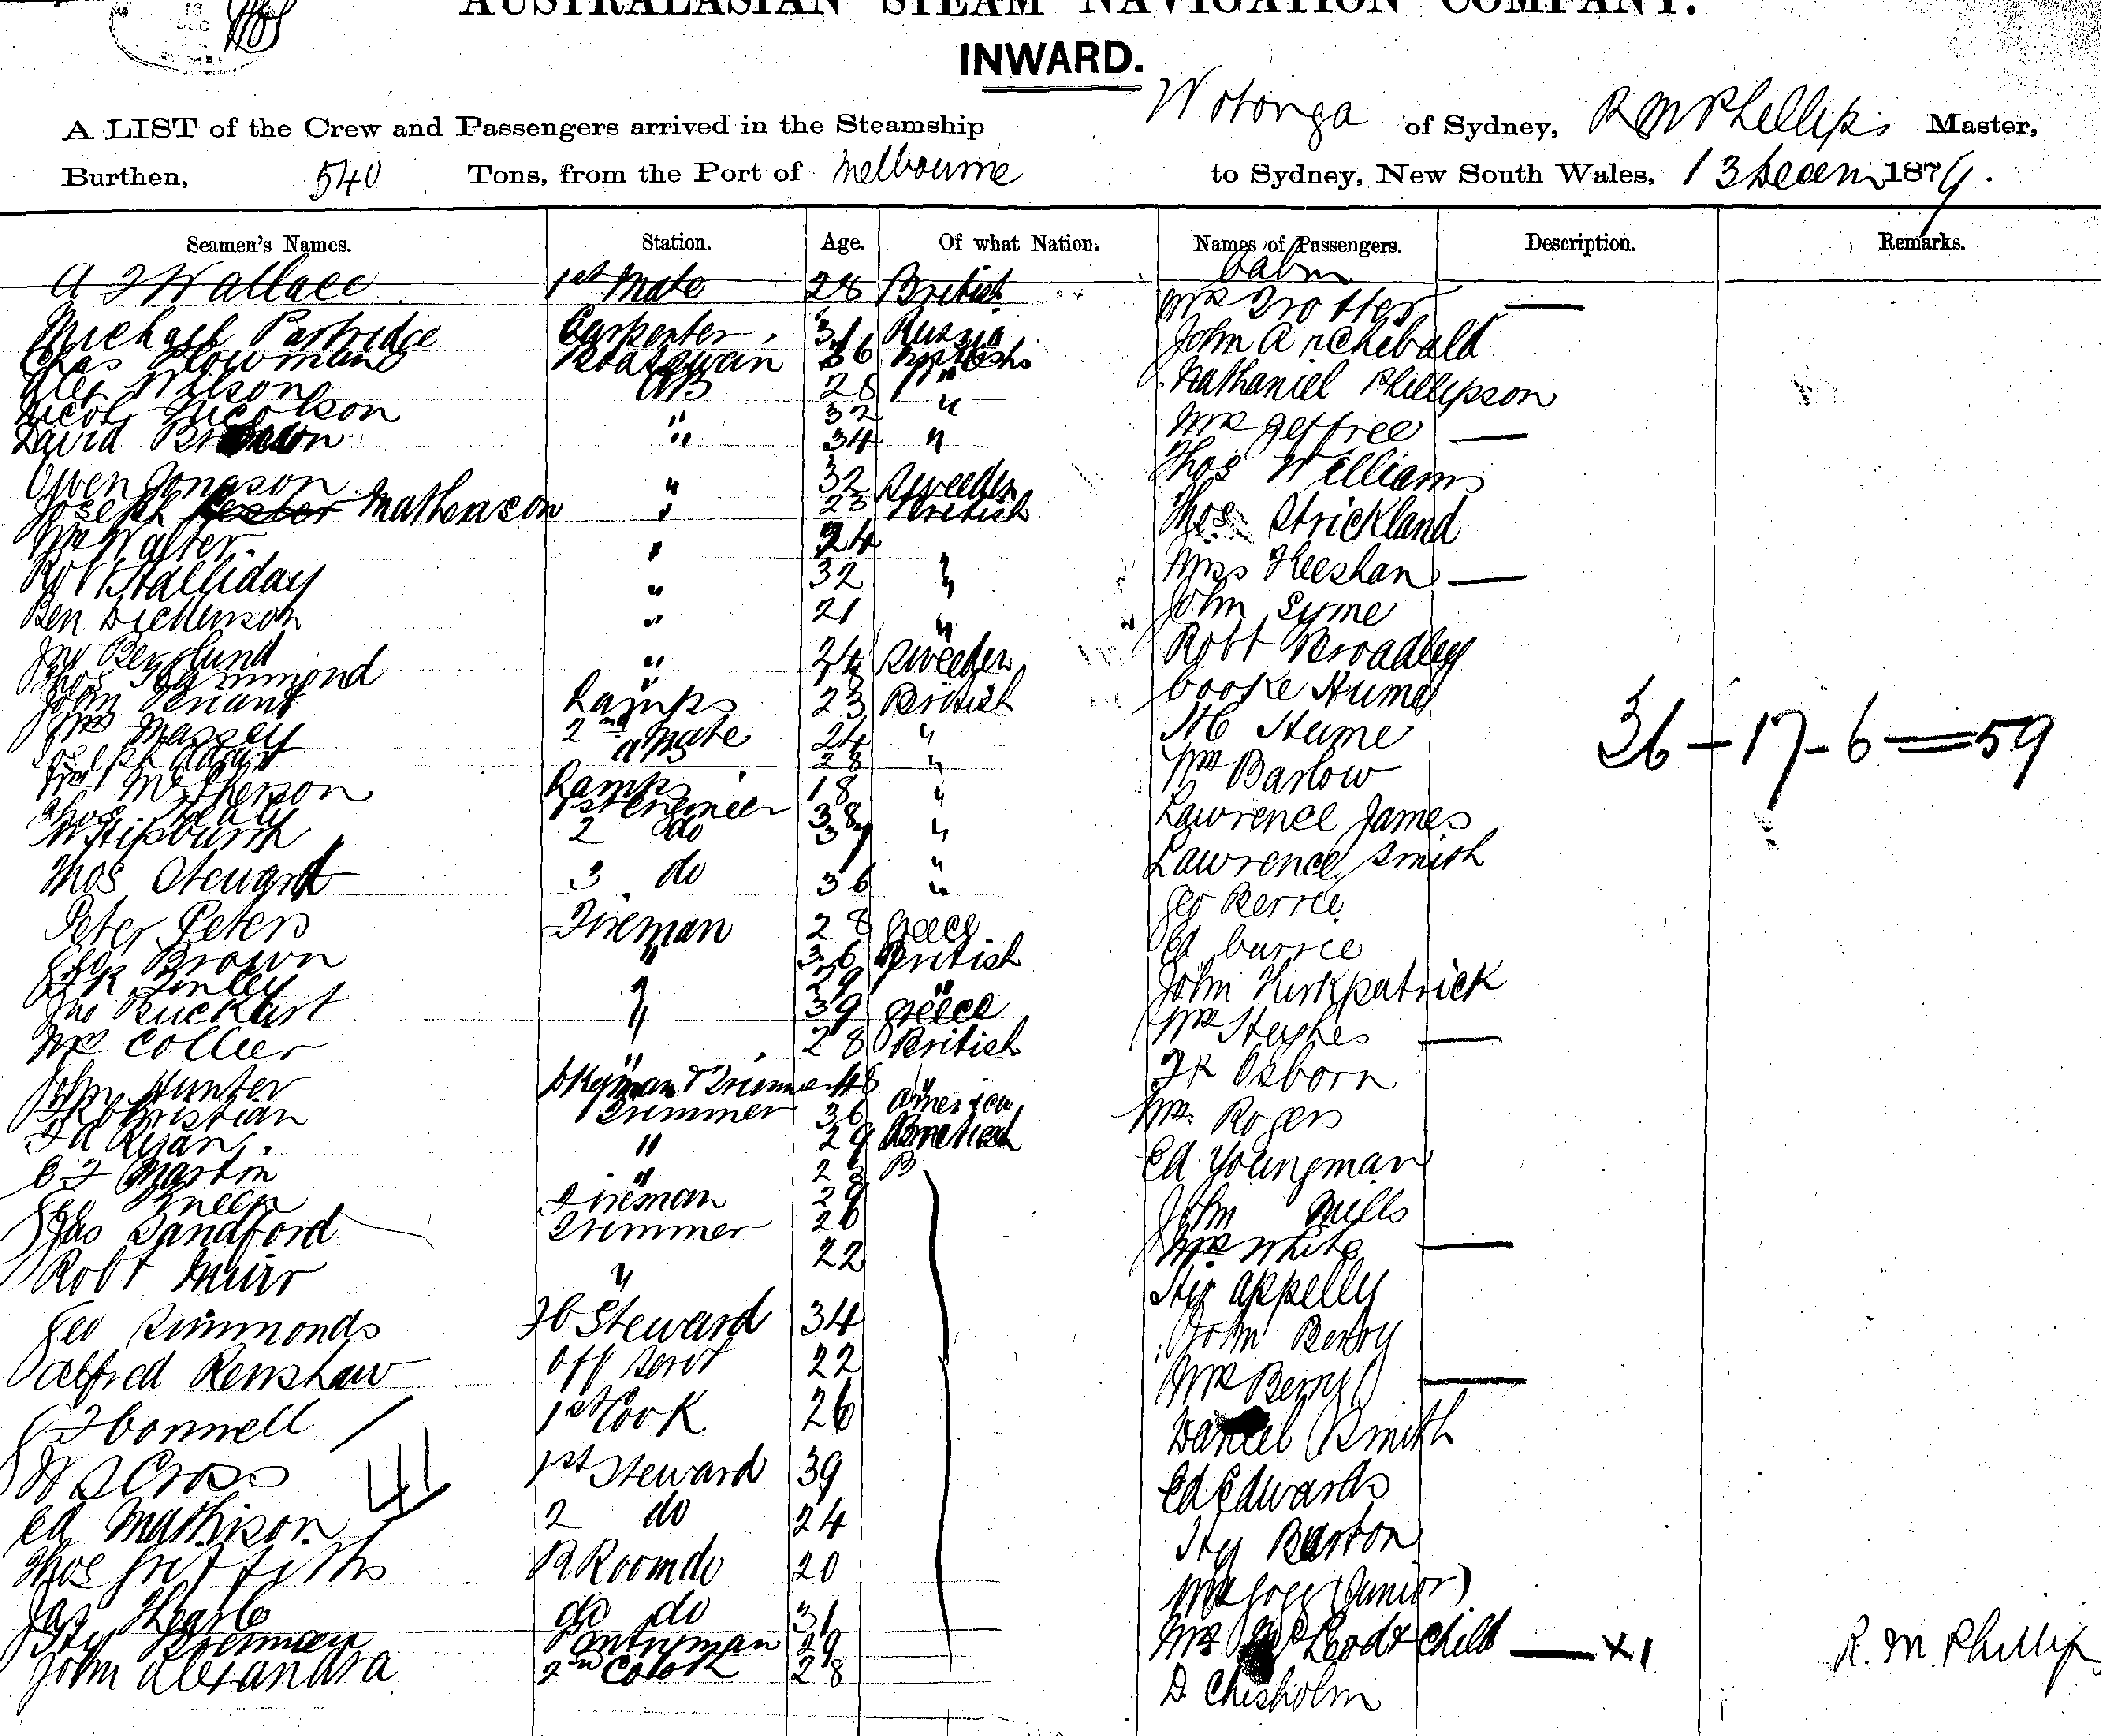 AUSTRALASIAN STEAM NAVIGATION COMPANY.
INWARD.
A LIST of the Crew and Passengers arrived in the Steamship Wotonga of Sydney, R M Phillips Master,
Burthen, 540 Tons, from the Port of Melbourne to Sydney, New South Wales, 13 Decem 1879.
Seamen's Names. Station. Age. Of what Nation. Names of Passengers. Description. Remarks.
Cabin
A J Wallace 1st Mate 28 British Mrs Trotter —
Michael Partridge Carpenter 31 Russia John Archibald
Chas Plowman Boatswan 36 British
Alex Wilson AB 28 " Nathaniel Phillipson
Nicol Nicolson " 32 "
David " 34 " Mrs Jeffree —
Owen Jonason " 32 Sweden Thos Williams
Joseph Mathewson " 23 British Thos Strickland
Wm Walter " 24
Robt Halliday " 32 " Mrs Heeshan —
Ben Dickenson " 21 " John Syme
Berglund " 24 Sweden Robt Broadley
Thos Hammond "
John Tenant Lamps 23 British Cooke Hume
Wm Massey 2nd Mate 24 " H C Hume
36 - 17 - 6 = 59
Joseph AB 28 "
Wm McPherson Lamps 18 " Wm Barlow
Thos Healy 1st Engineer 38 " Lawrence James
2 do 37 "
Thos Steuard 3 do 36 " Lawrence Smith
Geo Perrie
Peter Peters Fireman 28 Greece Ed Currie
Geo Brown " 36 British
Finley " 29 " John Kirkpatrick
Jno " 39 Greece Mrs Hughes —
Wm Collier " 28 British Osborn
John Hunter 48 "
Christian Trimmer 36 America Rogers
Ed Ryan " 29 British
C J Martin " 23 B Ed Youngman
Geo Fireman 29 John Mills
Jas Sandford Trimmer 26 Mrs White —
Robt Muir " 22 Hy Appelly
Geo Simmonds Steward 34 John Berry
Alfred Renshaw Off Servt 22 Mrs Berry —
Connell 1st Cook 26 Daniel Smith
W S Cross 1st Steward 39 Ed Edwards
Ed Mathison 2 do 24 Hy Barton
Thos Griffiths R Room do 20 (Junior)
Jas do do 31 Mrs McLeod & Child — x 1
Hy Brennan Pantryman 29 R. M. Phillips
John Alexandra 2nd Cook 28 D Chisholm